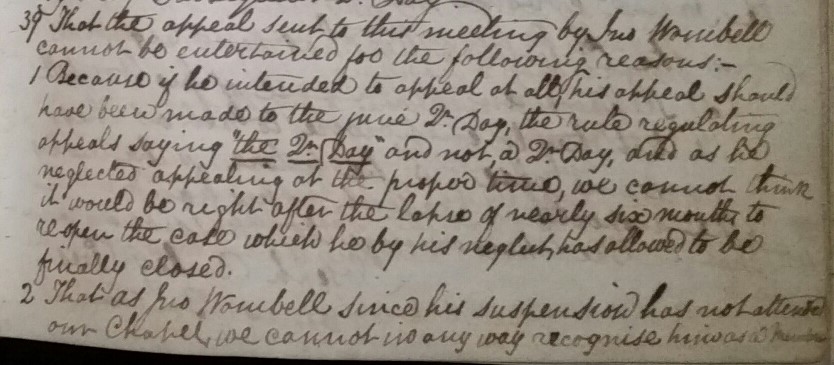 39 That the appeal sent to this meeting by Jno Wombell
cannot be entertained for the following reasons:-
1 Because if he intended to appeal at all, his appeal should
have been made to the june Qr. Day, the rule regulating
appeals saying "the Qr. Day" and not, a Qr. Day, and as he
neglected appealing at the proper time, we cannot think
it would be right after the lapse of nearly six months to
reopen the case which he by his neglect, has allowed to be
finally closed.
2 That as Jno Wombell since his suspension has not attended
our Chapel, we cannot in any way recognise him as a Member